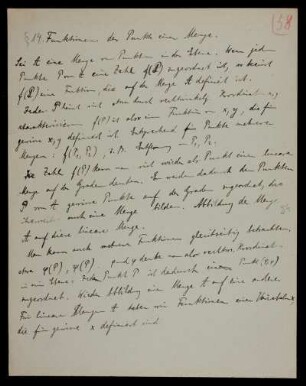 138
§ 14. Funktionen der Punkte einer Menge.
Sei A eine Menge von Punkten in der Ebene. Wenn jedem
Punkte P von A eine Zahl f(P) zugeordnet ist, so heisst
f(P) eine Funktion, die auf der Menge A definiert ist.
Jeder Punkt ist aber durch rechtwinklige Koordinaten
charakterisiert f(P) ist also eine Funktion von x, y, die für
gewisse x, y definiert ist. Entsprechend für Punkte mehrerer
Mengen: f(P₁, P₂), z.B. Entfernung von P₁, P₂.
Die Zahl f(P) kann man sich wieder als Punkt einer linearen
Menge auf der Geraden denken. Es werden dadurch den Punkten
P von A gewisse Punkte auf der Geraden zugeordnet, die
auch eine Menge bilden. Abbildung der Menge
A auf diese lineare Menge.
Man kann auch mehrere Funktionen gleichzeitig betrachten,
etwa φ(P), ψ(P) und φ, ψ denke man als rechtw. Koordinat.
in einer Ebene. Jedem Punkt P ist dadurch ein Punkt (φ, ψ)
zugeordnet. Wieder Abbildung einer Menge A auf eine andere.
Für lineare Mengen A haben wir Funktionen einer Variablen
die für gewisse x definiert sind.